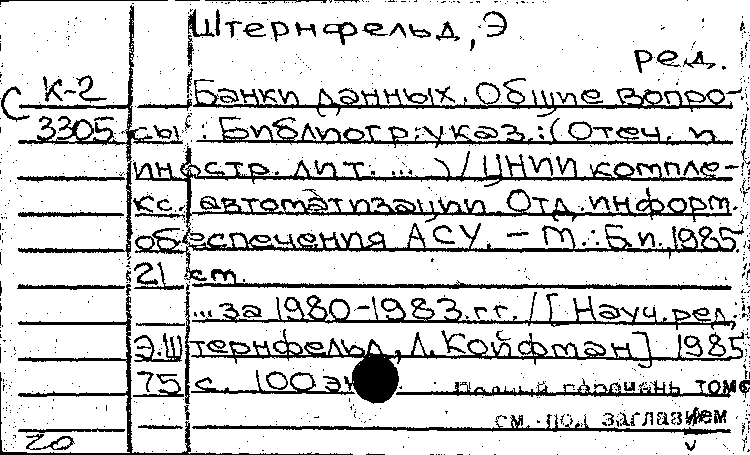 Штернфельд, Э
ред.
С К-2 Банки данных. Общие вопро-
3305 сы : Библиогр. указ. : (Отеч. и
иностр. лит. ... ) / ЦНИИ компле-
кс. автоматизации. Отд. информ.
обеспечения АСУ. – М. : Б.и., 1985
21 см.
... за 1980-1983 г.г. / [ Науч. ред.:
Э. Штернфельд, Л. Койфман] 1985
75 с. 100 эк
Полный перечень томо
см. под заглавием
20